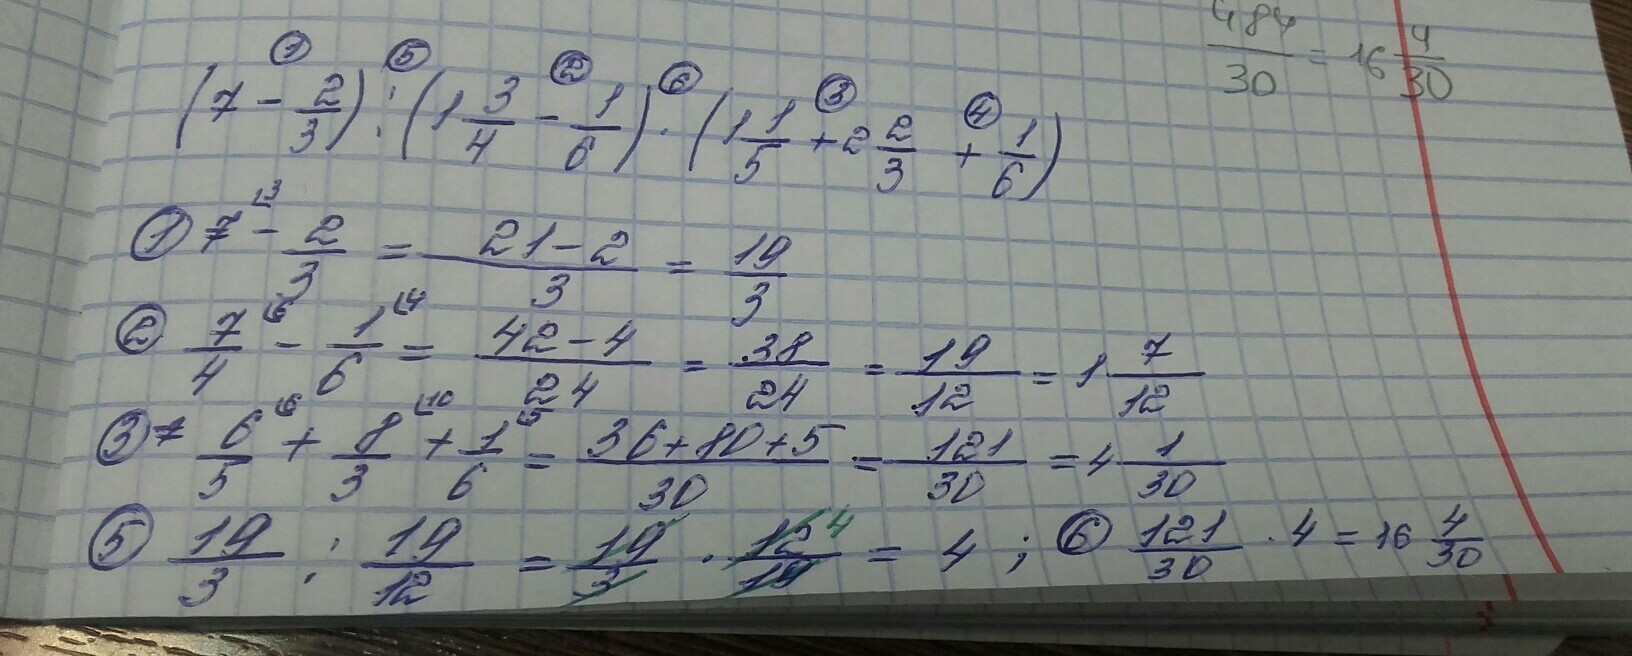 484/30 = 16 4/30
(7 - 2/3) : (1 3/4 - 1/6) · (1 1/5 + 2 2/3 + 1/6)
① 7 - 2/3 = 21-2/3 = 19/3
② 7/4 - 1/6 = 42-4/24 = 38/24 = 19/12 = 1 7/12
③ 6/5 + 8/3 + 1/6 = 36+80+5/30 = 121/30 = 4 1/30
⑤ 19/3 : 19/12 = 19/3 · 12/19 = 4 ; ⑥ 121/30 · 4 = 16 4/30